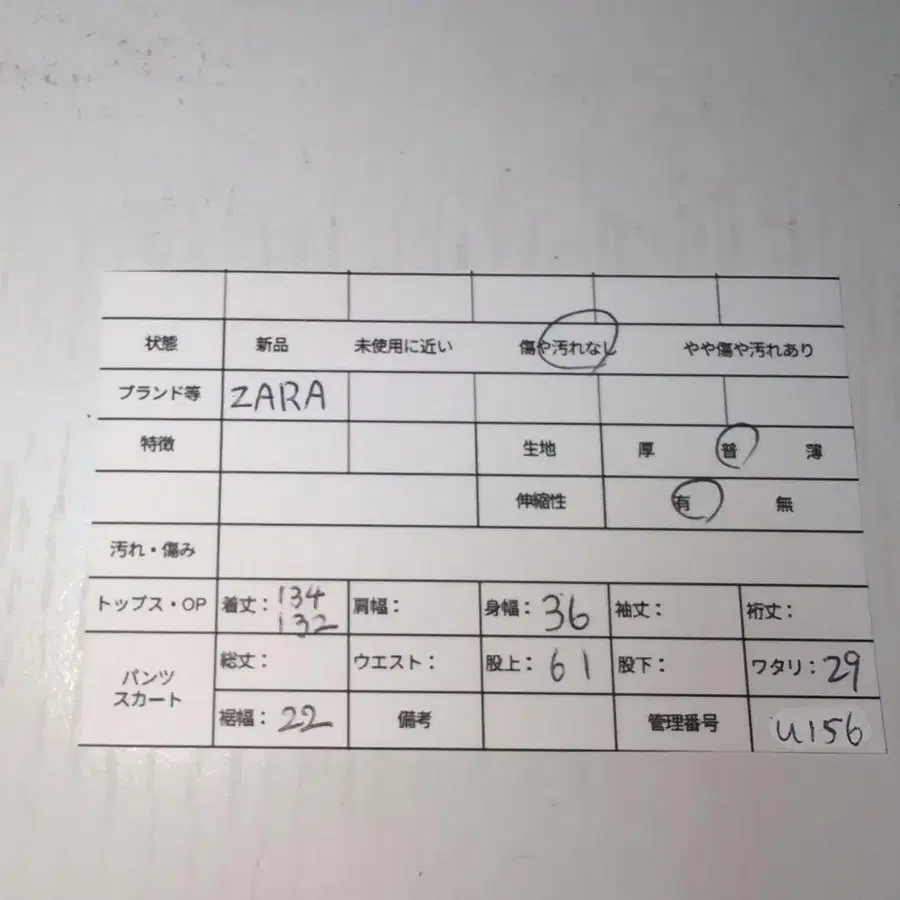 状態 新品 未使用に近い 傷や汚れなし やや傷や汚れあり
ブランド等 ZARA
特徴 生地 厚 普 薄
伸縮性 有 無
汚れ・傷み
トップス・OP 着丈：134 肩幅： 身幅：36 袖丈： 裄丈：
132
パンツ 総丈： ウエスト： 股上：61 股下： ワタリ：29
スカート
裾幅：22 備考 管理番号 U156